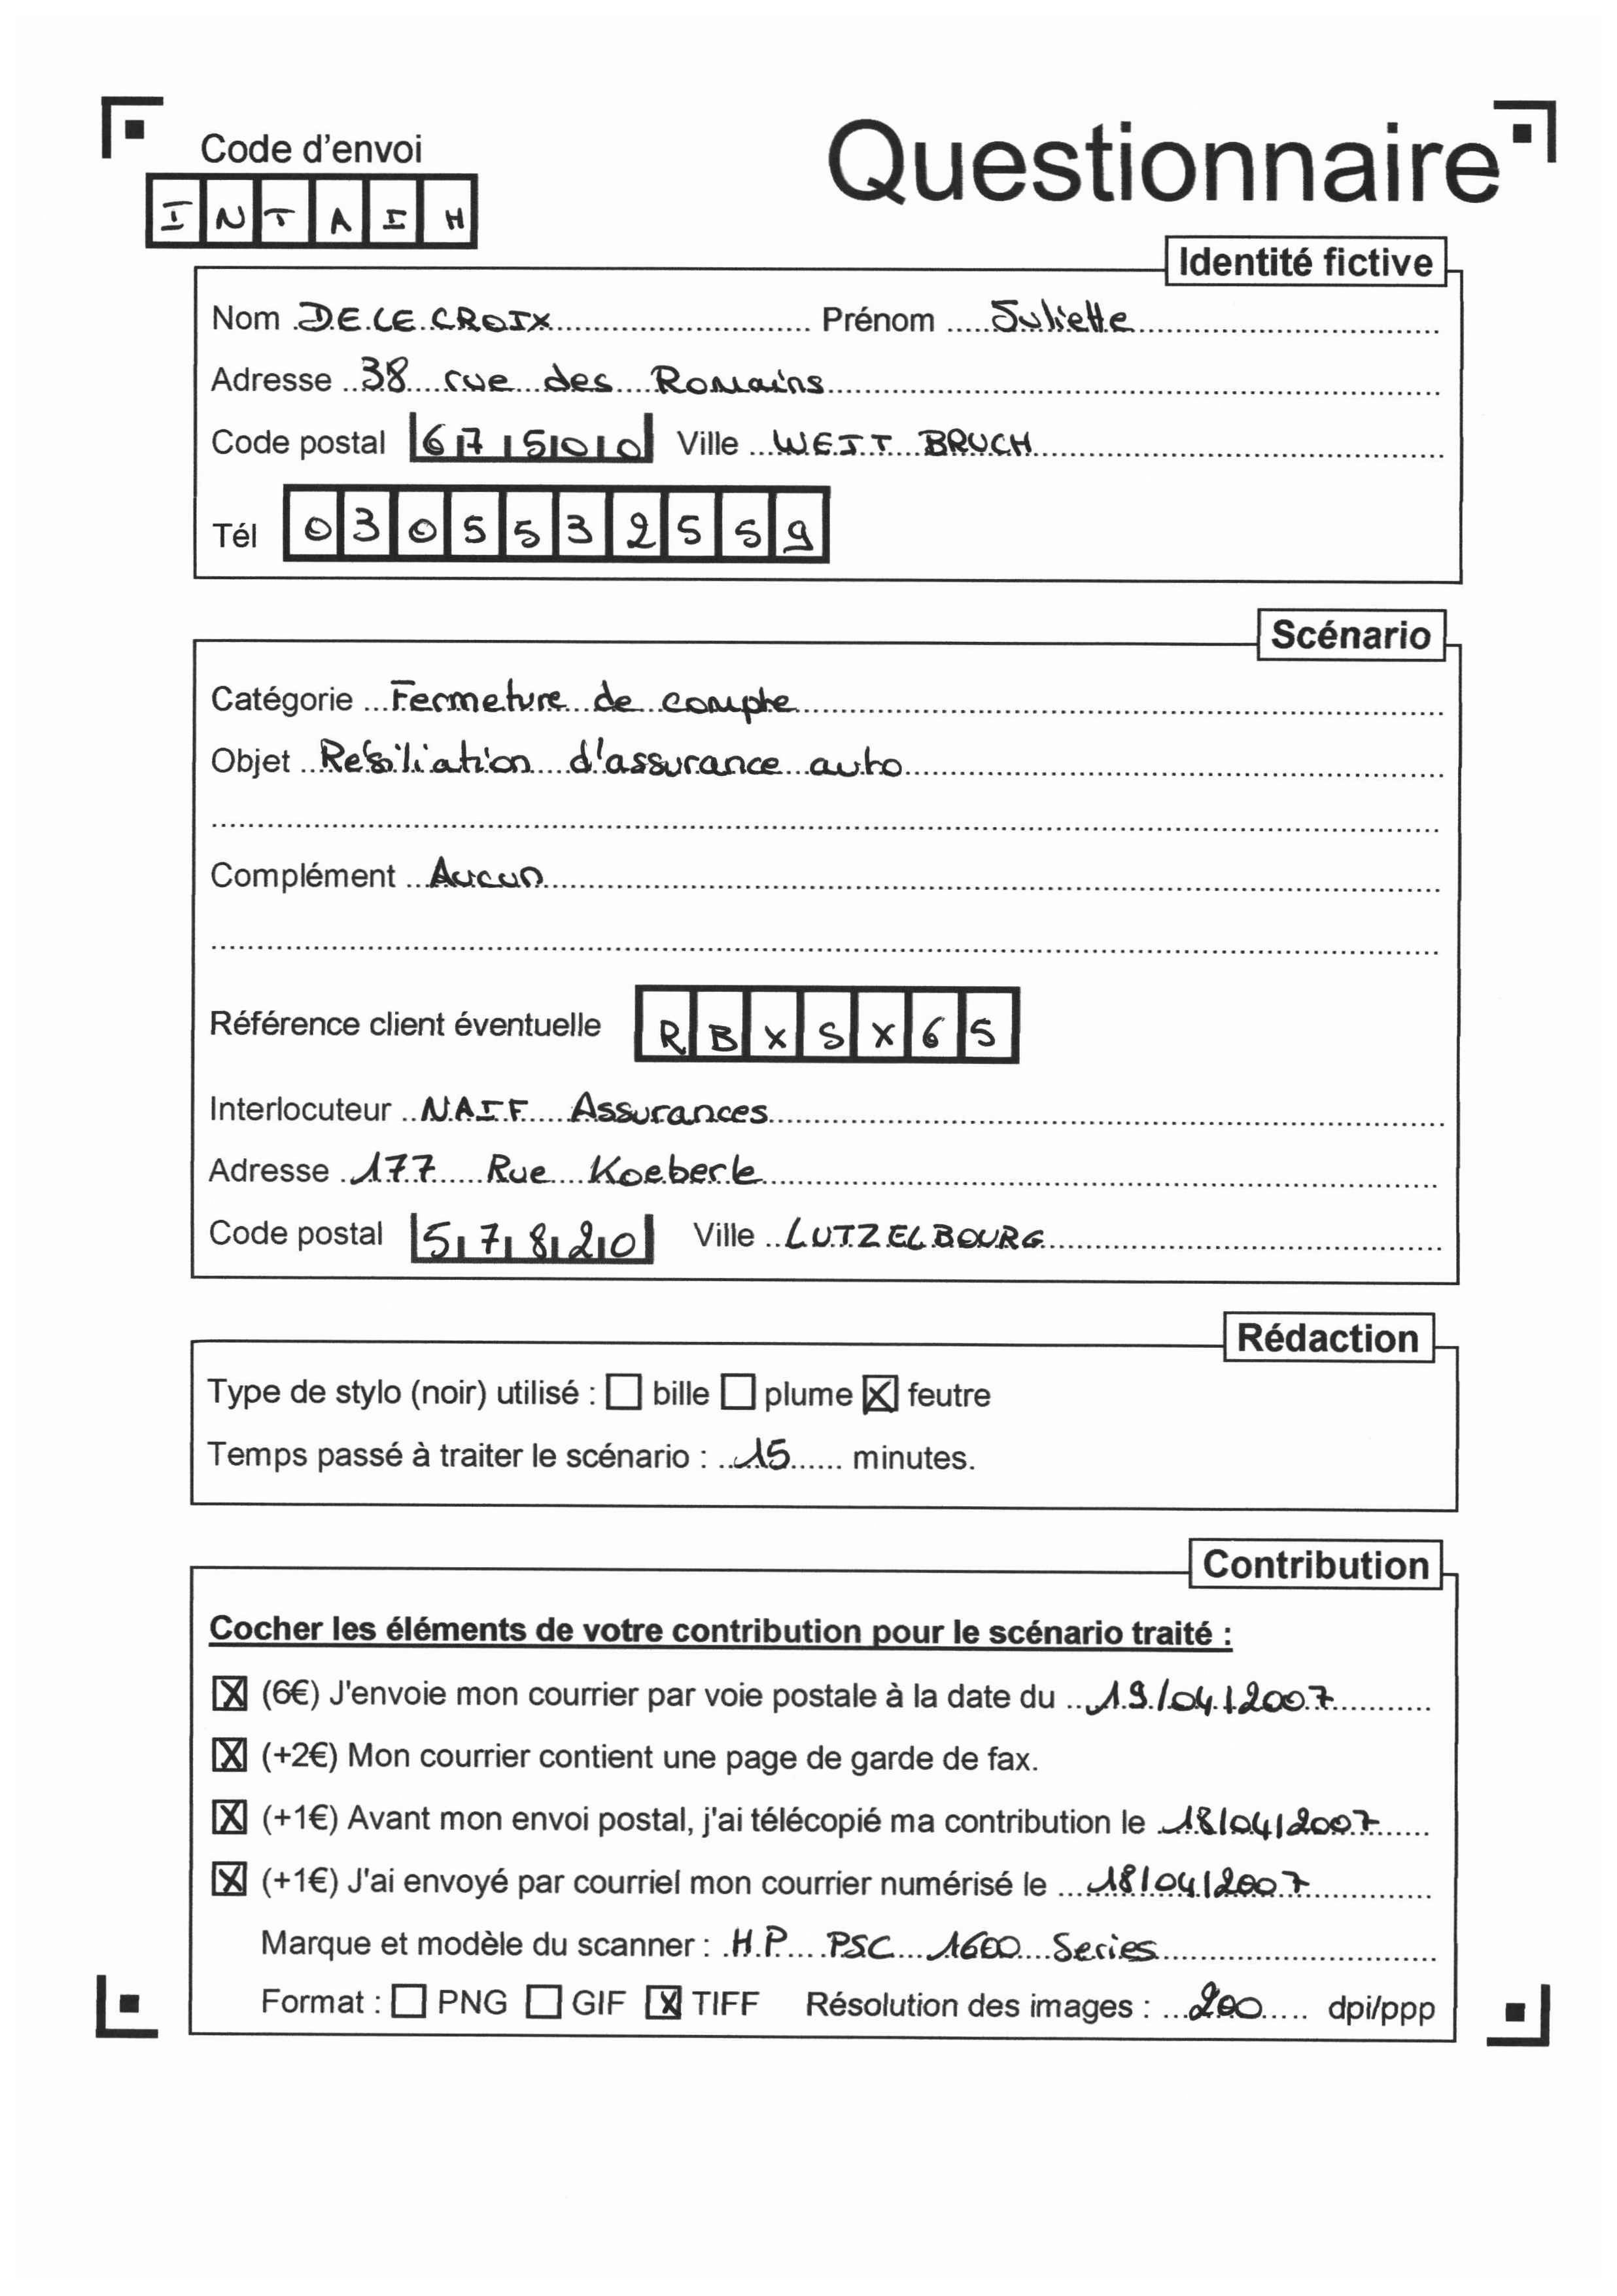 Code d'envoi
Questionnaire
INTAIH
Identité fictive
Nom DELECROIX Prénom Juliette
Adresse 38 rue des Romains
Code postal 67500 Ville WEITBRUCH
Tél 0305532559
Scénario
Catégorie Fermeture de compte
Objet Résiliation d'assurance auto
Complément Aucun
Référence client éventuelle RBXSX65
Interlocuteur NAIF Assurances
Adresse 177 Rue Koeberle
Code postal 57820 Ville LUTZELBOURG
Rédaction
Type de stylo (noir) utilisé : ☐ bille ☐ plume ☒ feutre
Temps passé à traiter le scénario : 15 minutes.
Contribution
Cocher les éléments de votre contribution pour le scénario traité :
☒ (6€) J'envoie mon courrier par voie postale à la date du 19/04/2007
☒ (+2€) Mon courrier contient une page de garde de fax.
☒ (+1€) Avant mon envoi postal, j'ai télécopié ma contribution le 18/04/2007
☒ (+1€) J'ai envoyé par courriel mon courrier numérisé le 18/04/2007
Marque et modèle du scanner : HP PSC 1600 Series
Format : ☐ PNG ☐ GIF ☒ TIFF Résolution des images : 200 dpi/ppp